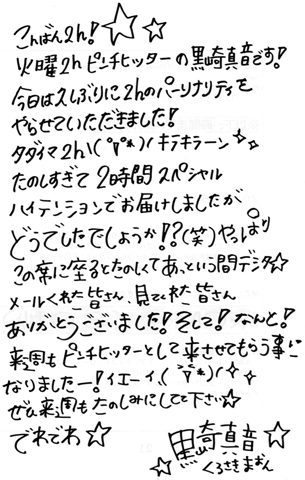 こんばん2h!☆☆
火曜2hピンチヒッターの黒崎真音です!
今日は久しぶりに2hのパーソナリティを
やらせていただきました!
タダイマ2h\( ˚∇˚*)/キラキラーン☆
たのしすぎて2時間スペシャル
ハイテンションでお届けしましたが
どうでしたでしょうか!?(笑)やっぱり
この席に座るとたのしくてあっという間デシタ☆
メールくれた皆さん、見てくれた皆さん
ありがとうございました!そして!なんと!
来週もピンチヒッターとして来させてもらう事に
なりましたー!イエーイ\( ˚∇˚*)/☆☆
ぜひ来週もたのしみにしてて下さい☆
でわでわ☆
黒崎真音☆
☆くろさきまおん